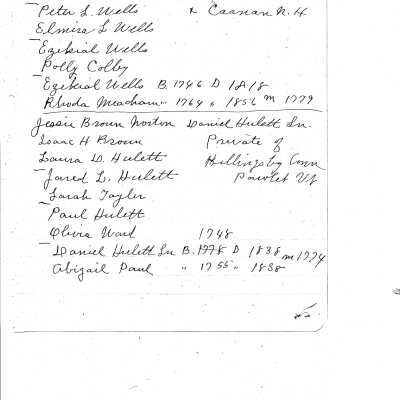 Peter S. Wells & Caanan N.H
Elmira L Wells
Ezekial Wells
Polly Colby
Ezekial Wells B. 1746 D 1818
Rhoda Meacham " 1764 " 1856 m 1779
Jessie Brown Norton Daniel Hulett Sn.
Isaac H Brown Private of
Laura D. Hulett Killingsby Conn
Jared L. Hulett Pawlet Vt
Sarah Tayler
Paul Hulett
Olivia Ward 1748
Daniel Hulett Sn B. 1748 D 1838 m 1774
Abigail Paul " 1755 " 1838